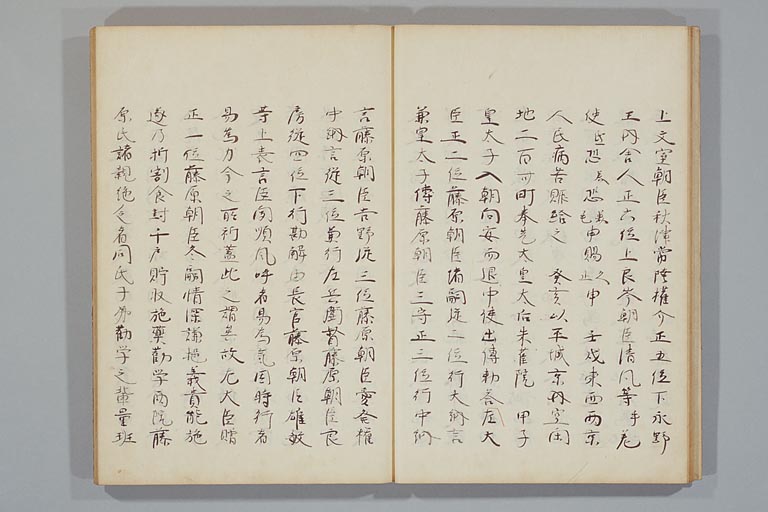 上文室朝臣秋津常陸權介正五位下永野
王內舍人正六位上良岑朝臣清風等手卷
使氏恐美恐毛申賜之止申　壬戌東西兩京
人民病苦賑給之　癸亥以平城京內空閑
地二百卅町奉充太皇太后朱雀院　甲子
皇太子入朝問安而退中使出傳勅荅左大
臣正二位藤原朝臣緒嗣從二位行大納言
兼皇太子傅藤原朝臣三守正三位行中納
言藤原朝臣吉野從三位藤原朝臣愛發權
中納言從三位兼行左兵衛督藤原朝臣良
房從四位下行勘解由長官藤原朝臣雄敏
等上表言臣聞順風呼者易為氣因時行者
易為力今之所祈蓋此之謂矣故左大臣贈
正一位藤原朝臣冬嗣情深謙挹義貴能施
遂乃折割食封千戶貯收施藥勸學兩院藤
原氏諸親絕乏者同氏子弟勸學之輩量班